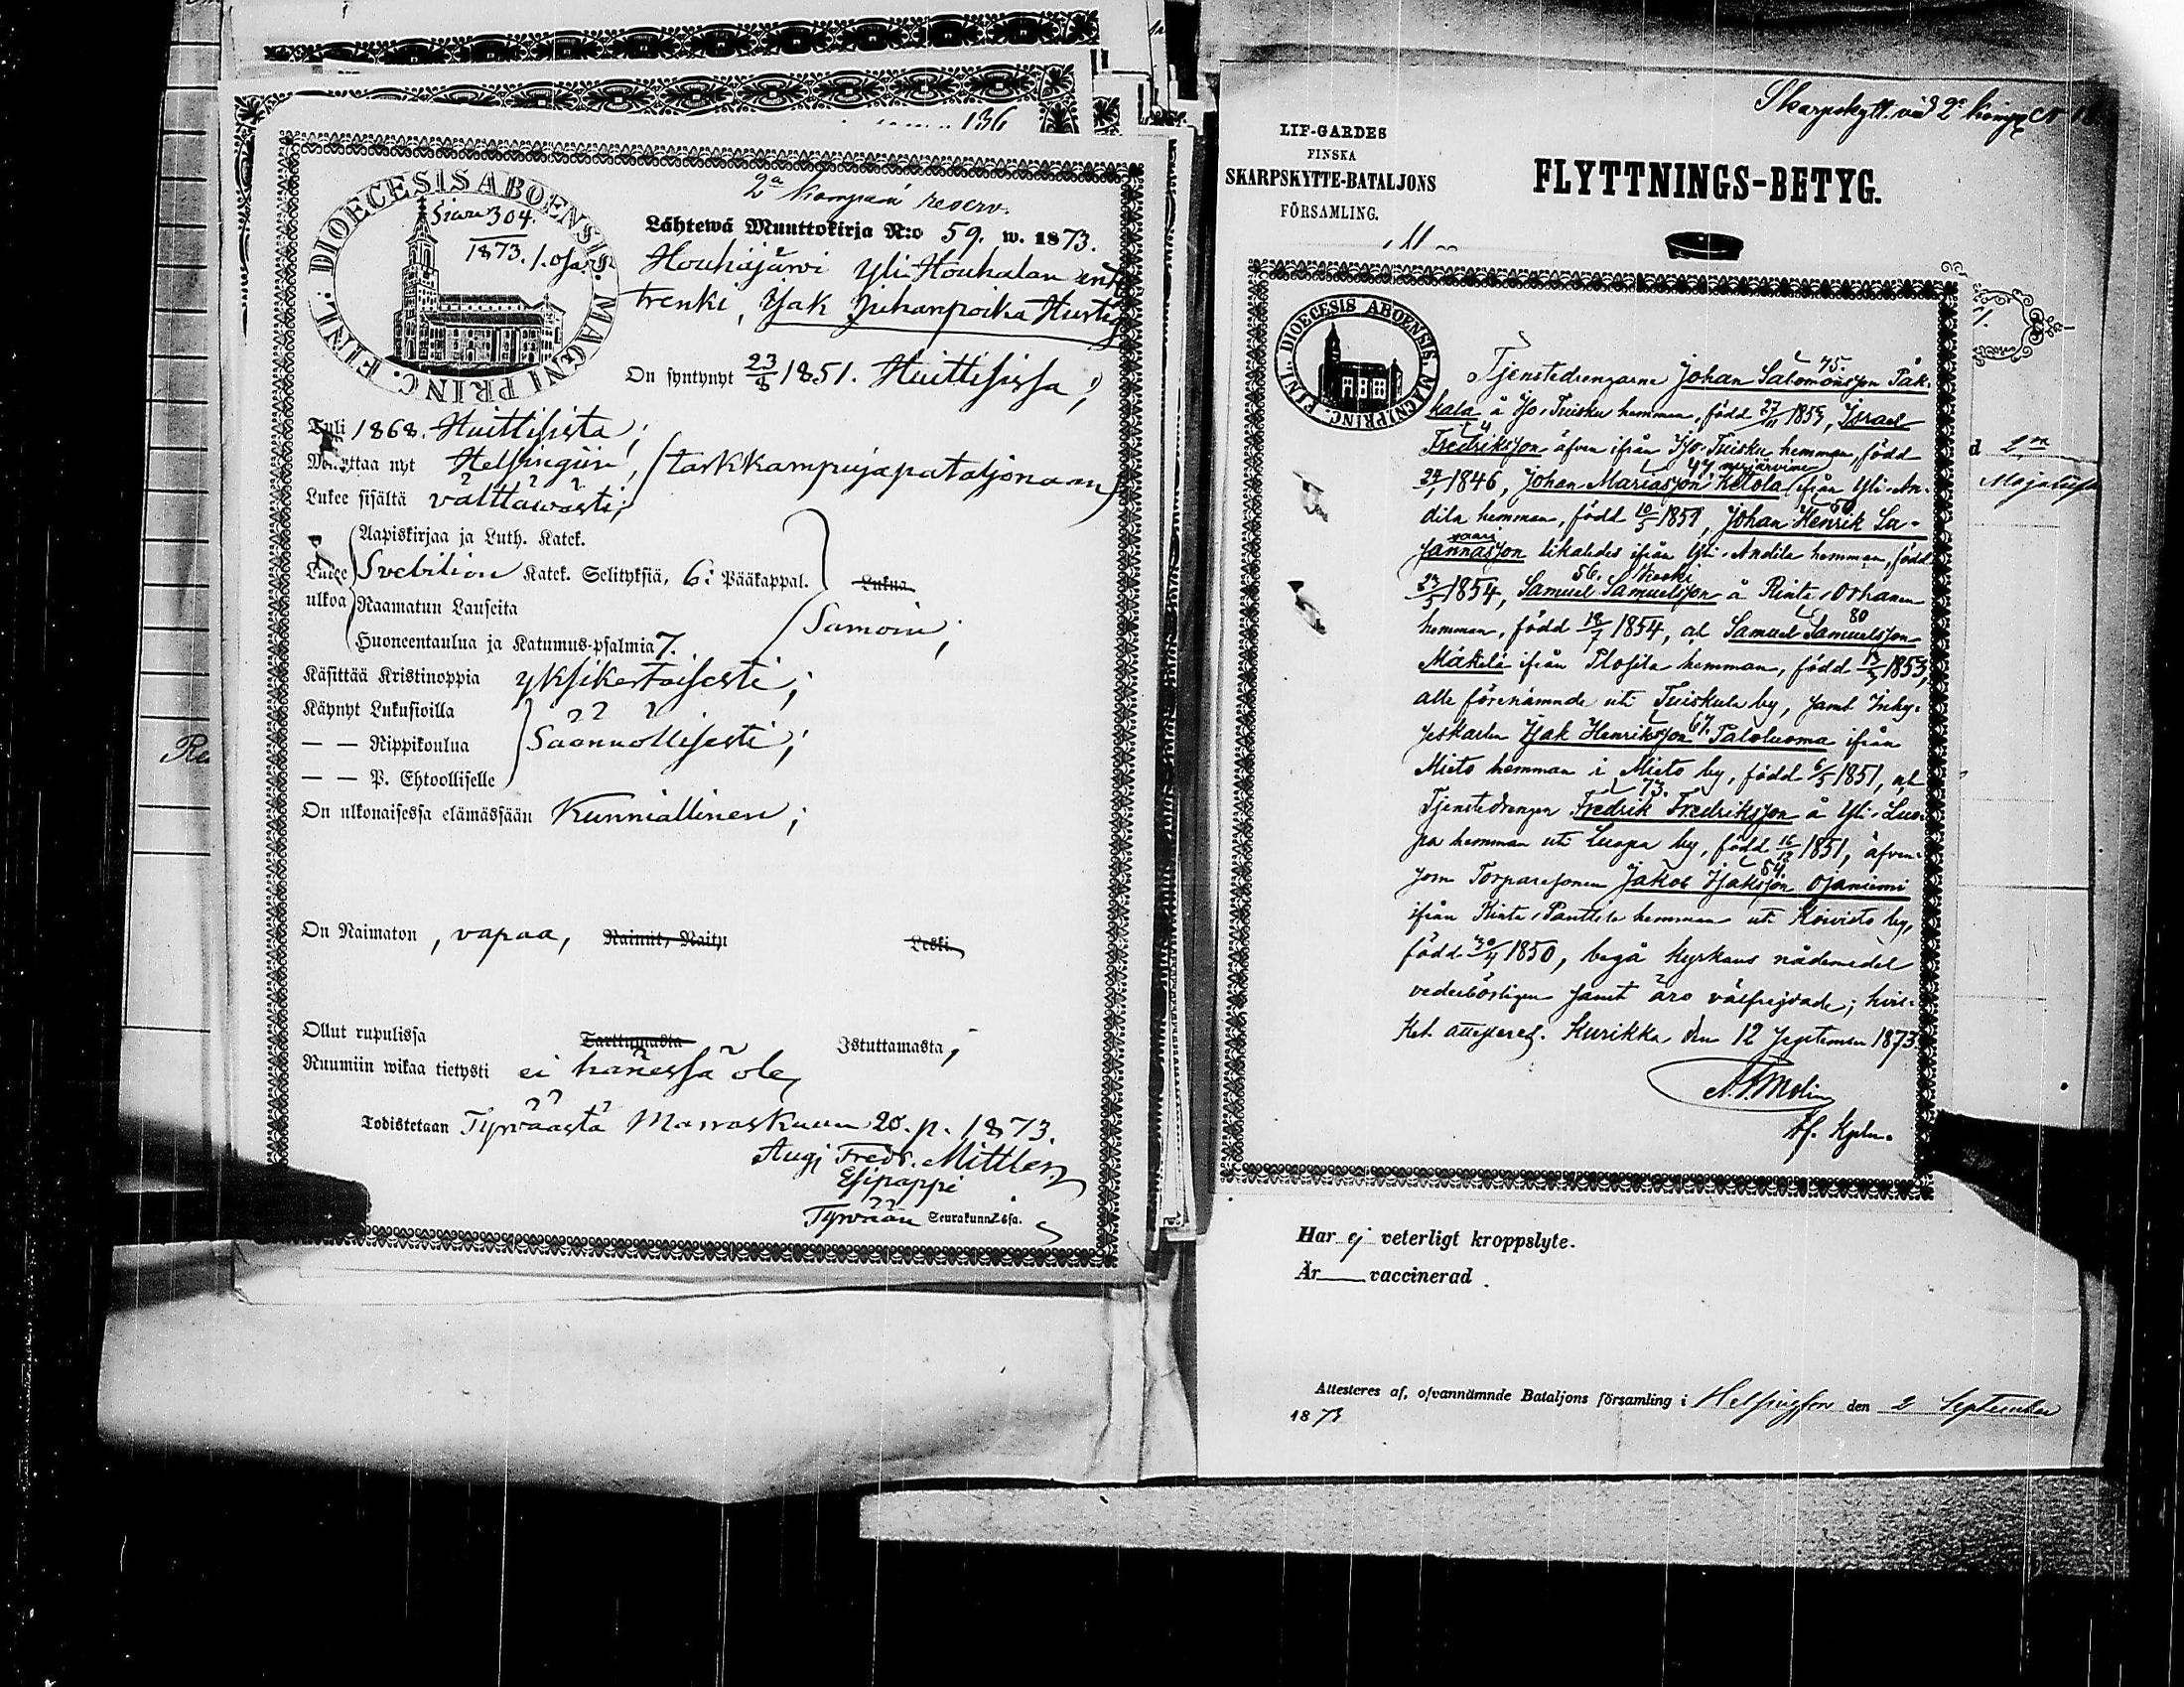 136
DIOECESIS ABOENSIS MAGNI PRINC. FINL:
Siaru 304.
1873. 1. osa.
2a kompani reserv.
Lähtewä Muuttokirja N:o 59. w. 1873.
Houhajärwi Yli-Houhalan ent.
trenki, Isak Juhanpoika Hurtig
On syntynyt 23/8 1851. Huittisissa;
Tuli 1868. Huittisista;
Muuttaa nyt Helsingiin, (tarkkampujapataljonaan)
Lukee sisältä välttäwästi;
Aapiskirjaa ja Luth. Katek.
Lukee Svebilion Katek. Selityksiä, 6: Pääkappal. Lukua
ulkoa Raamatun Lauseita
Samoin;
Huoneentaulua ja Katumus-psalmia 7.
Käsittää Kristinoppia yksikertaisesti;
Käynyt Lukusioilla
— — Rippikoulua Säännöllisesti;
— — P. Ehtoolliselle
On ulkonaisessa elämässään Kunniallinen;
On Naimaton, vapaa, Nainut, Naitu Leski
Ollut rupulissa Tarttumasta Istuttamasta;
Ruumiin wikaa tietysti ei hänessä ole,
Todistetaan Tyrväästä Marraskuun 20. p. 1873.
Aug. Fredr. Mittler
Esipappi
Tyrvään Seurakunnassa.
Skarpskytt. vid 2a komp.
LIF-GARDES
FINSKA
SKARPSKYTTE-BATALJONS
FÖRSAMLING.
FLYTTNINGS-BETYG.
FINL. DIOECESIS ABOENSIS. MAGNI PRINC.
75.
Tjenstedrengarne Johan Salomonsson Pak-
kala å Iso-Tuisku hemman, född 27/11 1855, Israel
Fredriksson äfven ifrån Iso-Tuisku hemman, född
47
24/1 1846, Johan Mariasson Ketola ifrån Yli-An-
60.
dila hemman, född 10/5 1851, Johan Henrik Sa-
Jannasson likaledes ifrån Yli-Andila hemman, född
56. Koski
23/5 1854, Samuel Samuelsson å Rinta-Orhanen
80
hemman, född 18/7 1854, al Samuel Samuelsson
Mäkelä ifrån Plosila hemman, född 1853,
alle förenämnde uti Tuiskula by, samt Inhy-
67.
seskarlen Isak Henriksson Paloluoma ifrån
Mieto hemman i Mieto by, född 6/5 1851, al
73.
Tjenstedrengen Fredrik Fredriksson å Yli-Luo-
pa hemman uti Luopa by, född 16/12 1851, äfven-
54.
som Torparesonen Jakob Isaksson Ojaniemi
ifrån Rinta-Panttila hemman uti Koivisto by,
född 30/4 1850, begå kyrkans nådemedel
vederbörligen samt äro välfrejdade; hvil-
ket attesteras. Kurikka den 12 September 1873.
A. F. Molin
Kpln.
Har ej veterligt kroppslyte.
Är vaccinerad.
Attesteres af, ofvannämnde Bataljons församling i Helsingfors den 2 September
1873